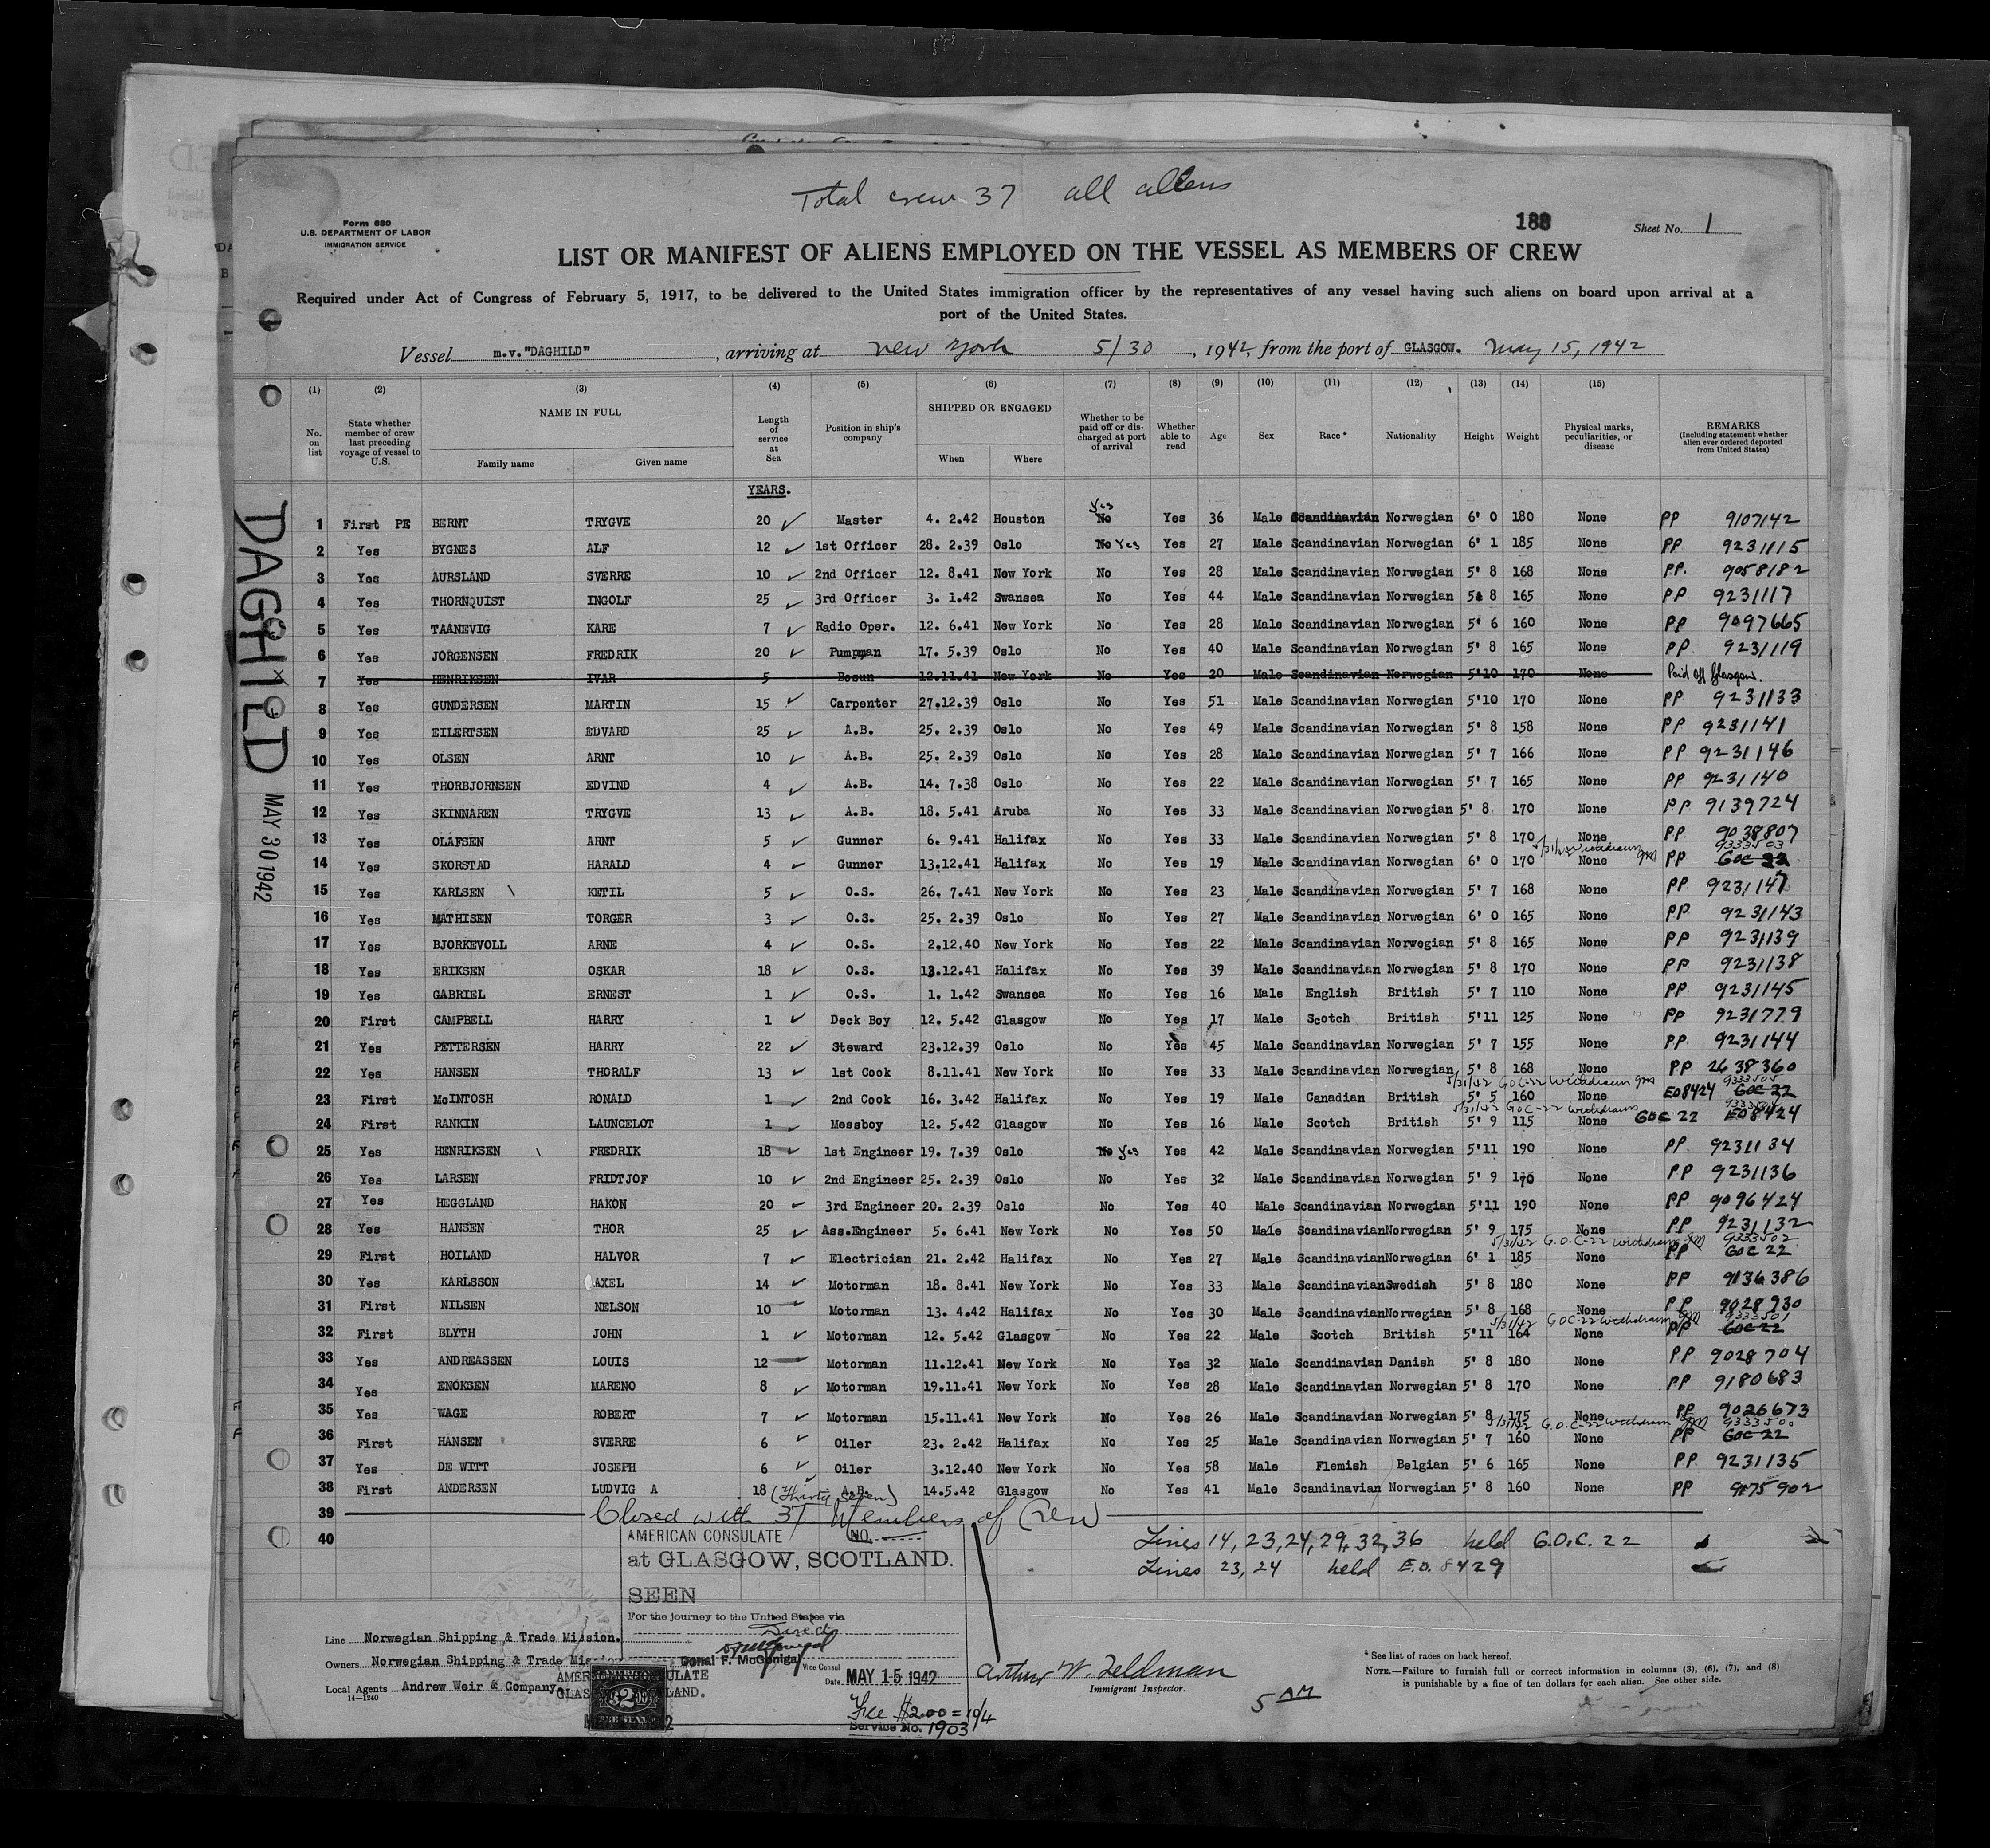 Total crew 37 all aliens
Form 680
U.S. DEPARTMENT OF LABOR
IMMIGRATION SERVICE
188
Sheet No. 1
LIST OR MANIFEST OF ALIENS EMPLOYED ON THE VESSEL AS MEMBERS OF CREW
Required under Act of Congress of February 5, 1917, to be delivered to the United States immigration officer by the representatives of any vessel having such aliens on board upon arrival at a
port of the United States.
Vessel m.v."DAGHILD", arriving at New York 5/30, 1942, from the port of GLASGOW. May 15, 1942
(1) (2) (3) (4) (5) (6) (7) (8) (9) (10) (11) (12) (13) (14) (15)
No. on list
State whether member of crew last preceding voyage of vessel to U.S.
NAME IN FULL
Family name Given name
Length of service at Sea
Position in ship's company
SHIPPED OR ENGAGED
When Where
Whether to be paid off or discharged at port of arrival
Whether able to read
Age Sex Race* Nationality Height Weight
Physical marks, peculiarities, or disease
REMARKS
(Including statement whether alien ever ordered deported from United States)
YEARS.
Yes
1 First PE BERNT TRYGVE 20 Master 4. 2.42 Houston No Yes 36 Male Scandinavian Norwegian 6' 0 180 None PP 9107142
2 Yes BYGNES ALF 12 1st Officer 28. 2.39 Oslo No Yes Yes 27 Male Scandinavian Norwegian 6' 1 185 None PP 9231115
3 Yes AURSLAND SVERRE 10 2nd Officer 12. 8.41 New York No Yes 28 Male Scandinavian Norwegian 5' 8 168 None PP. 9058182
4 Yes THORNQUIST INGOLF 25 3rd Officer 3. 1.42 Swansea No Yes 44 Male Scandinavian Norwegian 5' 8 165 None PP 9231117
5 Yes TAANEVIG KARE 7 Radio Oper. 12. 6.41 New York No Yes 28 Male Scandinavian Norwegian 5' 6 160 None PP 9097665
6 Yes JORGENSEN FREDRIK 20 Pumpman 17. 5.39 Oslo No Yes 40 Male Scandinavian Norwegian 5' 8 165 None PP. 9231119
7 Yes HENRIKSEN IVAR 5 Bosun 12.11.41 New York No Yes 20 Male Scandinavian Norwegian 5'10 170 None Paid off Glasgow.
8 Yes GUNDERSEN MARTIN 15 Carpenter 27.12.39 Oslo No Yes 51 Male Scandinavian Norwegian 5'10 170 None PP 9231133
9 Yes EILERTSEN EDVARD 25 A.B. 25. 2.39 Oslo No Yes 49 Male Scandinavian Norwegian 5' 8 158 None PP 9231141
10 Yes OLSEN ARNT 10 A.B. 25. 2.39 Oslo No Yes 28 Male Scandinavian Norwegian 5' 7 166 None PP 9231146
11 Yes THORBJORNSEN EDVIND 4 A.B. 14. 7.38 Oslo No Yes 22 Male Scandinavian Norwegian 5' 7 165 None PP 9231140
12 Yes SKINNAREN TRYGVE 13 A.B. 18. 5.41 Aruba No Yes 33 Male Scandinavian Norwegian 5' 8 170 None PP 9139724
13 Yes OLAFSEN ARNT 5 Gunner 6. 9.41 Halifax No Yes 33 Male Scandinavian Norwegian 5' 8 170 None PP. 9038807
5/31/42 Withdrawn 9333503
14 Yes SKORSTAD HARALD 4 Gunner 13.12.41 Halifax No Yes 19 Male Scandinavian Norwegian 6' 0 170 None PP GOC 22
15 Yes KARLSEN KETIL 5 O.S. 26. 7.41 New York No Yes 23 Male Scandinavian Norwegian 5' 7 168 None PP 9231147
16 Yes MATHISEN TORGER 3 O.S. 25. 2.39 Oslo No Yes 27 Male Scandinavian Norwegian 6' 0 165 None PP. 9231143
17 Yes BJORKEVOLL ARNE 4 O.S. 2.12.40 New York No Yes 22 Male Scandinavian Norwegian 5' 8 165 None PP 9231139
18 Yes ERIKSEN OSKAR 18 O.S. 13.12.41 Halifax No Yes 39 Male Scandinavian Norwegian 5' 8 170 None PP 9231138
19 Yes GABRIEL ERNEST 1 O.S. 1. 1.42 Swansea No Yes 16 Male English British 5' 7 110 None PP. 9231145
20 First CAMPBELL HARRY 1 Deck Boy 12. 5.42 Glasgow No Yes 17 Male Scotch British 5'11 125 None PP 9231779
21 Yes PETTERSEN HARRY 22 Steward 23.12.39 Oslo No Yes 45 Male Scandinavian Norwegian 5' 7 155 None PP. 9231144
22 Yes HANSEN THORALF 13 1st Cook 8.11.41 New York No Yes 33 Male Scandinavian Norwegian 5' 8 168 None PP 2638360
5/31/42 GOC-22 Withdrawn 9333505
23 First McINTOSH RONALD 1 2nd Cook 16. 3.42 Halifax No Yes 19 Male Canadian British 5' 5 160 None EO8424 GOC 22
5/31/42 GOC-22 Withdrawn
24 First RANKIN LAUNCELOT 1 Messboy 12. 5.42 Glasgow No Yes 16 Male Scotch British 5' 9 115 None GOC 22 EO8424
25 Yes HENRIKSEN FREDRIK 18 1st Engineer 19. 7.39 Oslo No Yes Yes 42 Male Scandinavian Norwegian 5'11 190 None PP. 9231134
26 Yes LARSEN FRIDTJOF 10 2nd Engineer 25. 2.39 Oslo No Yes 32 Male Scandinavian Norwegian 5' 9 170 None PP 9231136
27 Yes HEGGLAND HAKON 20 3rd Engineer 20. 2.39 Oslo No Yes 40 Male Scandinavian Norwegian 5'11 190 None PP 9096424
28 Yes HANSEN THOR 25 Ass.Engineer 5. 6.41 New York No Yes 50 Male Scandinavian Norwegian 5' 9 175 None PP 9231132
5/31/42 G.O.C-22 Withdrawn 9333502
29 First HOILAND HALVOR 7 Electrician 21. 2.42 Halifax No Yes 27 Male Scandinavian Norwegian 6' 1 185 None PP GOC 22
30 Yes KARLSSON AXEL 14 Motorman 18. 8.41 New York No Yes 33 Male Scandinavian Swedish 5' 8 180 None PP 9136386
31 First NILSEN NELSON 10 Motorman 13. 4.42 Halifax No Yes 30 Male Scandinavian Norwegian 5' 8 168 None PP 9028930
5/31/42 GOC-22 Withdrawn 9333501
32 First BLYTH JOHN 1 Motorman 12. 5.42 Glasgow No Yes 22 Male Scotch British 5'11 164 None PP GOC 22
33 Yes ANDREASSEN LOUIS 12 Motorman 11.12.41 New York No Yes 32 Male Scandinavian Danish 5' 8 180 None PP. 9028704
34 Yes ENOKSEN MARENO 8 Motorman 19.11.41 New York No Yes 28 Male Scandinavian Norwegian 5' 8 170 None PP 9180683
35 Yes WAGE ROBERT 7 Motorman 15.11.41 New York No Yes 26 Male Scandinavian Norwegian 5' 8 175 None PP. 9026673
5/31/42 G.O.C-22 Withdrawn 9333500
36 First HANSEN SVERRE 6 Oiler 23. 2.42 Halifax No Yes 25 Male Scandinavian Norwegian 5' 7 160 None PP GOC 22
37 Yes DE WITT JOSEPH 6 Oiler 3.12.40 New York No Yes 58 Male Flemish Belgian 5' 6 165 None PP. 9231135
38 First ANDERSEN LUDVIG A 18 A.B. 14.5.42 Glasgow No Yes 41 Male Scandinavian Norwegian 5' 8 160 None PP 9175902
(Thirty Seven)
39 Closed with 37 Members of Crew
40
DAGHILD MAY 30 1942
AMERICAN CONSULATE NO.
at GLASGOW, SCOTLAND.
SEEN
For the journey to the United States via
Direct
Donal F. McGonigal
Vice Consul
Date MAY 15 1942
Fee $2.00 = 10/4
Service No. 1903
Lines 14, 23, 24, 29, 32, 36 held G.O.C. 22
Lines 23, 24 held E.O. 8429
Line Norwegian Shipping & Trade Mission.
Owners Norwegian Shipping & Trade Mission
Local Agents Andrew Weir & Company.
14—1240
AMERICAN CONSULATE
GLASGOW, SCOTLAND.
Arthur W. Feldman
Immigrant Inspector.
5 AM
* See list of races on back hereof.
NOTE.—Failure to furnish full or correct information in columns (3), (6), (7), and (8)
is punishable by a fine of ten dollars for each alien. See other side.